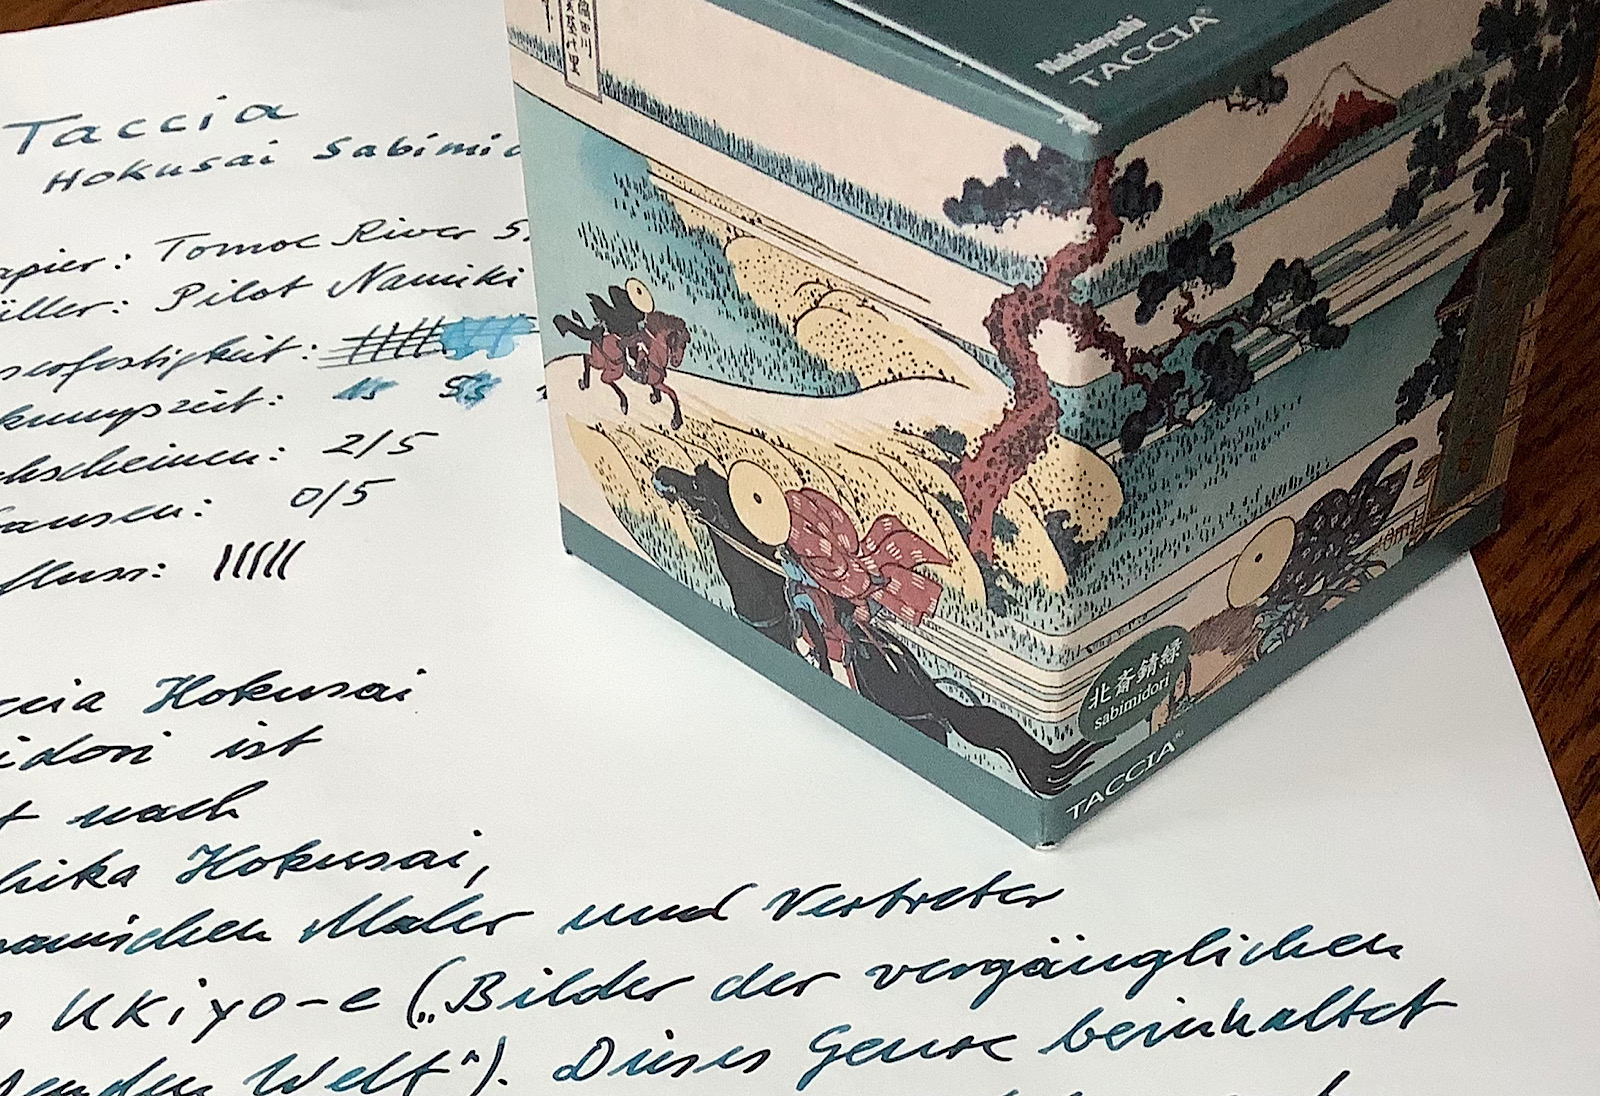 Taccia
Hokusai Sabimid
apier: Tomoe River S.
üller: Pilot Namiki
serfestigkeit:
knungszeit: 1s 5s
chscheinen: 2/5
fransen: 0/5
fluss:
ccia Hokusai
idori ist
t nach
hika Hokusai,
panischen Maler und Vertreter
s Ukiyo-e („Bilder der vergänglichen
enden Welt"). Dieses Genre beinhaltet
Nakabayashi
TACCIA
北斎錆緑
sabimidori
TACCIA